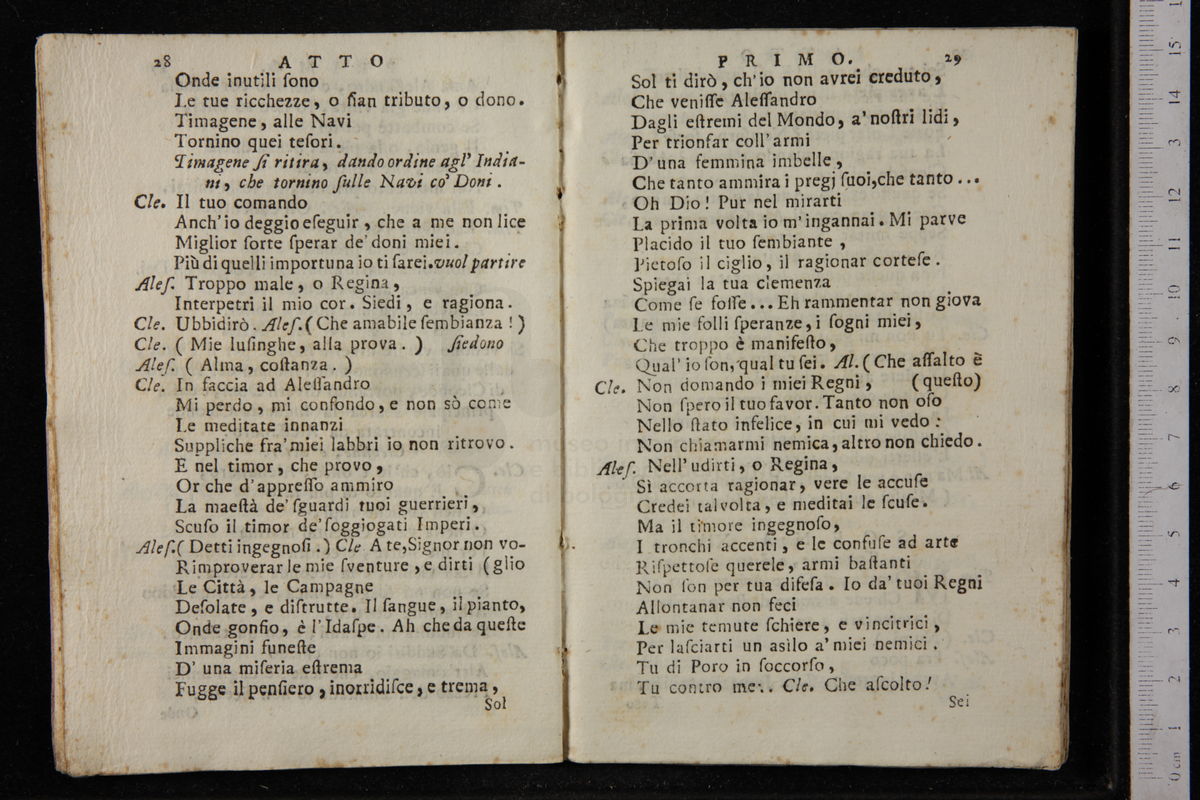 28 ATTO
Onde inutili ſono
Le tue ricchezze, o ſian tributo, o dono.
Timagene, alle Navi
Tornino quei teſori.
Timagene ſi ritira, dando ordine agl' India-
ni, che tornino ſulle Navi co' Doni.
Cle. Il tuo comando
Anch'io deggio eſeguir, che a me non lice
Miglior ſorte ſperar de' doni miei.
Più di quelli importuna io ti ſarei. vuol partire
Aleſ. Troppo male, o Regina,
Interpetri il mio cor. Siedi, e ragiona.
Cle. Ubbidirò. Aleſ. (Che amabile ſembianza!)
Cle. (Mie luſinghe, alla prova.) ſiedono
Aleſ. (Alma, coſtanza.)
Cle. In faccia ad Aleſſandro
Mi perdo, mi confondo, e non sò come
Le meditate innanzi
Suppliche fra' miei labbri io non ritrovo.
E nel timor, che provo,
Or che d'appreſſo ammiro
La maeſtà de' ſguardi tuoi guerrieri,
Scuſo il timor de' ſoggiogati Imperi.
Aleſ. (Detti ingegnoſi.) Cle A te, Signor non vo-
Rimproverar le mie ſventure, e dirti (glio
Le Città, le Campagne
Deſolate, e diſtrutte. Il ſangue, il pianto,
Onde gonfio, è l'Idaſpe. Ah che da queſte
Immagini funeſte
D' una miſeria eſtrema
Fugge il penſiero, inorridiſce, e trema,
Sol
PRIMO. 29
Sol ti dirò, ch'io non avrei creduto,
Che veniſſe Aleſſandro
Dagli eſtremi del Mondo, a' noſtri lidi,
Per trionfar coll'armi
D'una femmina imbelle,
Che tanto ammira i pregj ſuoi, che tanto ...
Oh Dio! Pur nel mirarti
La prima volta io m'ingannai. Mi parve
Placido il tuo ſembiante,
Pietoſo il ciglio, il ragionar corteſe.
Spiegai la tua clemenza
Come ſe foſſe ... Eh rammentar non giova
Le mie folli ſperanze, i ſogni miei,
Che troppo è manifeſto,
Qual' io ſon, qual tu ſei. Al. (Che aſſalto è
Cle. Non domando i miei Regni, (queſto)
Non ſpero il tuo favor. Tanto non oſo
Nello ſtato infelice, in cui mi vedo:
Non chiamarmi nemica, altro non chiedo.
Aleſ. Nell' udirti, o Regina,
Sì accorta ragionar, vere le accuſe
Credei talvolta, e meditai le ſcuſe.
Ma il timore ingegnoſo,
I tronchi accenti, e le confuſe ad arte
Riſpettoſe querele, armi baſtanti
Non ſon per tua difeſa. Io da' tuoi Regni
Allontanar non feci
Le mie temute ſchiere, e vincitrici,
Per laſciarti un asilo a' miei nemici.
Tu di Poro in ſoccorſo,
Tu contro me... Cle. Che aſcolto!
Sei